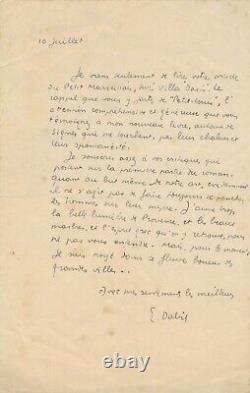 10 Juillet
Je viens seulement de lire votre article
du Petit Marseillais, sur "Villa Oasis". Le
rappel que vous y faites de "Petit-Louis", l'
attention compréhensive et généreuse que vous
témoignez à mon nouveau livre, autant de
signes qui me touchent, par leur chaleur et
leur spontanéité.
Je souscris assez à vos critiques, qui
portent sur la première partie du roman.
Quant au but même de notre art, évidemment
il ne s'agit pas de faire toujours se pencher
les hommes sur leur misère. J'aime trop
la belle lumière de Provence, et les beaux
marbres, et l'esprit grec qu'on y retrouve, pour
ne pas vous entendre. Mais, pour le moment,
Je suis noyé dans ce fleuve boueux des
grandes villes...
Avec mes sentiments les meilleurs
E. Dabit
© 1worth